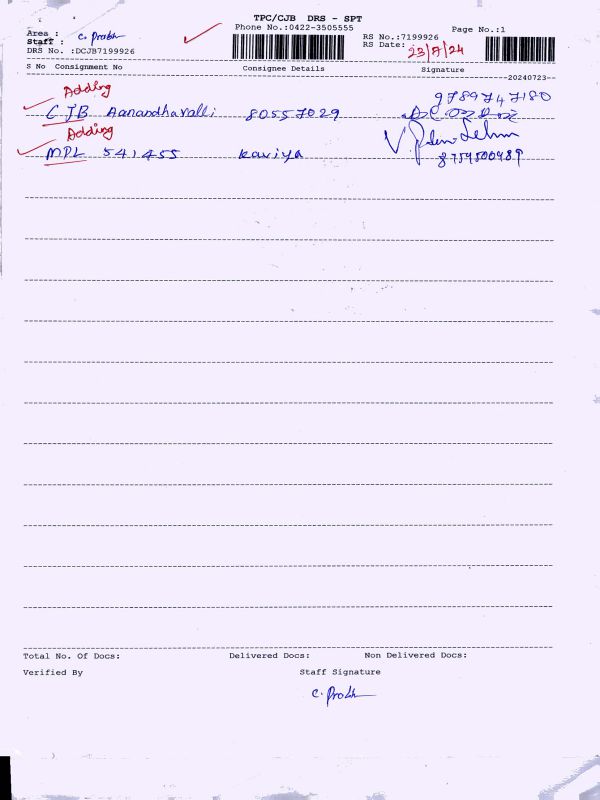 TPC/CJB DRS - SPT
Phone No.:0422-3505555
Page No.:1
Area :
Staff : C. Prabh
DRS No. :DCJB7199926
RS No.:7199926
RS Date: 23/7/24
S No Consignment No Consignee Details Signature
--20240723--
Adding
9789747180
CJB Aanandhavalli 80557029
Adding
MPL 541455 Kaviya
8754500489
Total No. Of Docs: Delivered Docs: Non Delivered Docs:
Verified By Staff Signature
C. Prabh